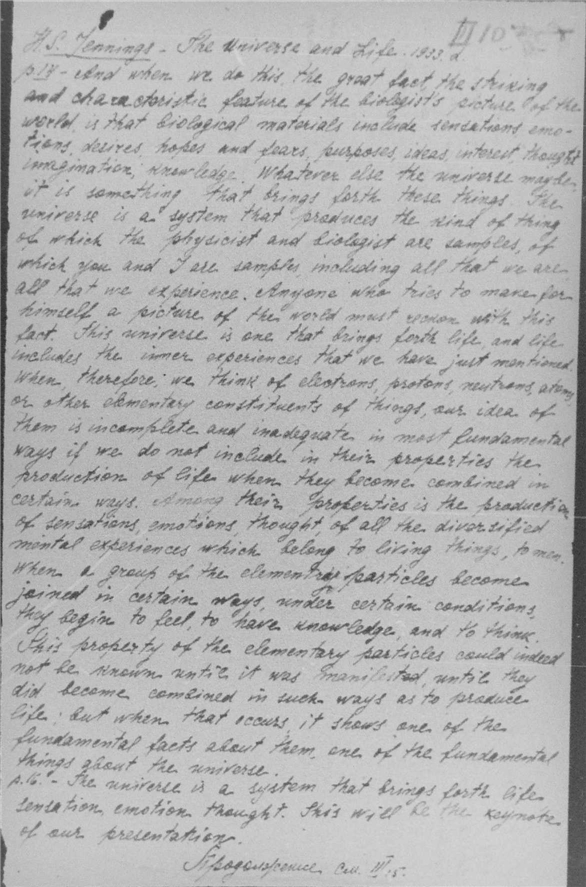 III 10
H.S. Jennings - The Universe and Life. 1933.
p.14 - And when we do this, the great fact, the striking
and characteristic feature of the biologist's picture of the
world, is that biological materials include sensations, emo-
tions, desires, hopes and fears, purposes, ideas, interest, thought
imagination, knowledge. Whatever else the universe may be,
it is something that brings forth these things. The
universe is a system that produces the kind of thing
of which the physicist and biologist are samples, of
which you and I are samples, including all that we are
all that we experience. Anyone who tries to make for
himself a picture of the world must reckon with this
fact. This universe is one that brings forth life, and life
includes the inner experiences that we have just mentioned.
When, therefore, we think of electrons, protons, neutrons, atoms,
or other elementary constituents of things, our idea of
them is incomplete and inadequate in most fundamental
ways if we do not include in their properties the
production of life when they become combined in
certain ways. Among their properties is the production
of sensations, emotions, thought of all the diversified
mental experiences which belong to living things, to men.
When a group of the elementary particles become
joined in certain ways, under certain conditions,
they begin to feel, to have knowledge, and to think.
This property of the elementary particles could indeed
not be known until it was manifested, until they
did become combined in such ways as to produce
life; but when that occurs, it shows one of the
fundamental facts about them, one of the fundamental
things about the universe.
p.16. - The universe is a system that brings forth life
sensation, emotion, thought. This will be the keynote
of our presentation.
Продолжение см. III 15.